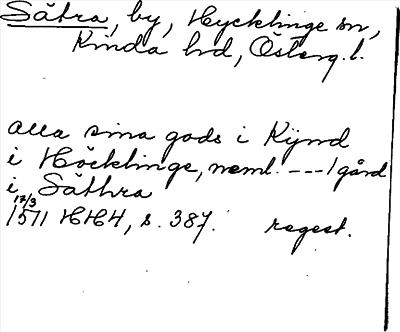 Sätra, by, Hycklinge sn,
Kinda hd, Österg.l.
alla sina gods i Kijnd
i Höcklinge, neml. --- 1 gård
i Säthra
12/3
1511 HH4, s. 387. regest.